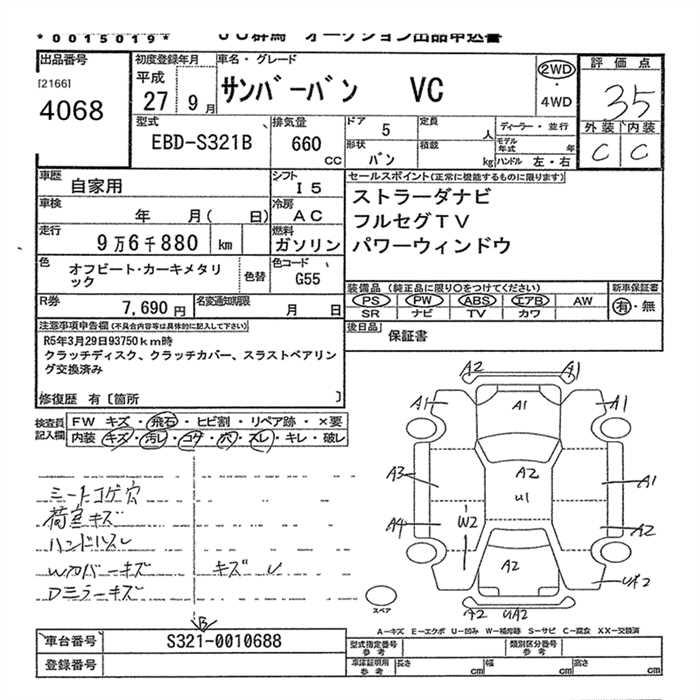 *0015019* JU群馬 オークション出品申込書
出品番号 初度登録年月 車名・グレード 評価点
[2166] 平成 サンバーバン VC 2WD・4WD 35
4068 27 9月
外装 内装
C C
型式 排気量 ドア 5 定員 人 ディーラー・並行
EBD-S321B 660 CC 形状 バン 積載 kg モデル年式 年 ハンドル 左・右
車歴 自家用 シフト I5 セールスポイント(正常に機能するものに限ります)
車検 年 月( 日) 冷房 AC ストラーダナビ
フルセグTV
走行 9万6千880 km 燃料 ガソリン パワーウィンドウ
色 オフビート・カーキメタリック 色替 色コード G55
装備品(純正品に限り○をつけてください) 新車保証書
PS PW ABS エアB AW 有・無
SR ナビ TV カワ
R券 7,690円 名変通知期限 月 日
後日品 保証書
注意事項申告欄(不具合内容等は具体的に記入して下さい)
R5年3月29日93750km時
クラッチディスク、クラッチカバー、スラストベアリン
グ交換済み
修復歴 有〔箇所 〕
検査員記入欄 FW キズ・飛石・ヒビ割・リペア跡・×要
内装・キズ・汚レ・コゲ・穴・スレ・キレ・破レ
シートコゲ穴
荷室キズ
ハンドルスレ
Wカバーキズ キズ レ
Dミラーキズ
B
A2 A1
A1 A1 A1
A3 A2 A1
U1
A4 W2 A2
A2 UA2
A2 UA2
スペア
A-キズ E-エクボ U-凹み W-補修跡 S-サビ C-腐食 XX-交換済
車台番号 S321-0010688 型式指定番号 参考 類別区分番号 参考
登録番号 車検証用 参考 長さ cm 幅 cm 高さ cm